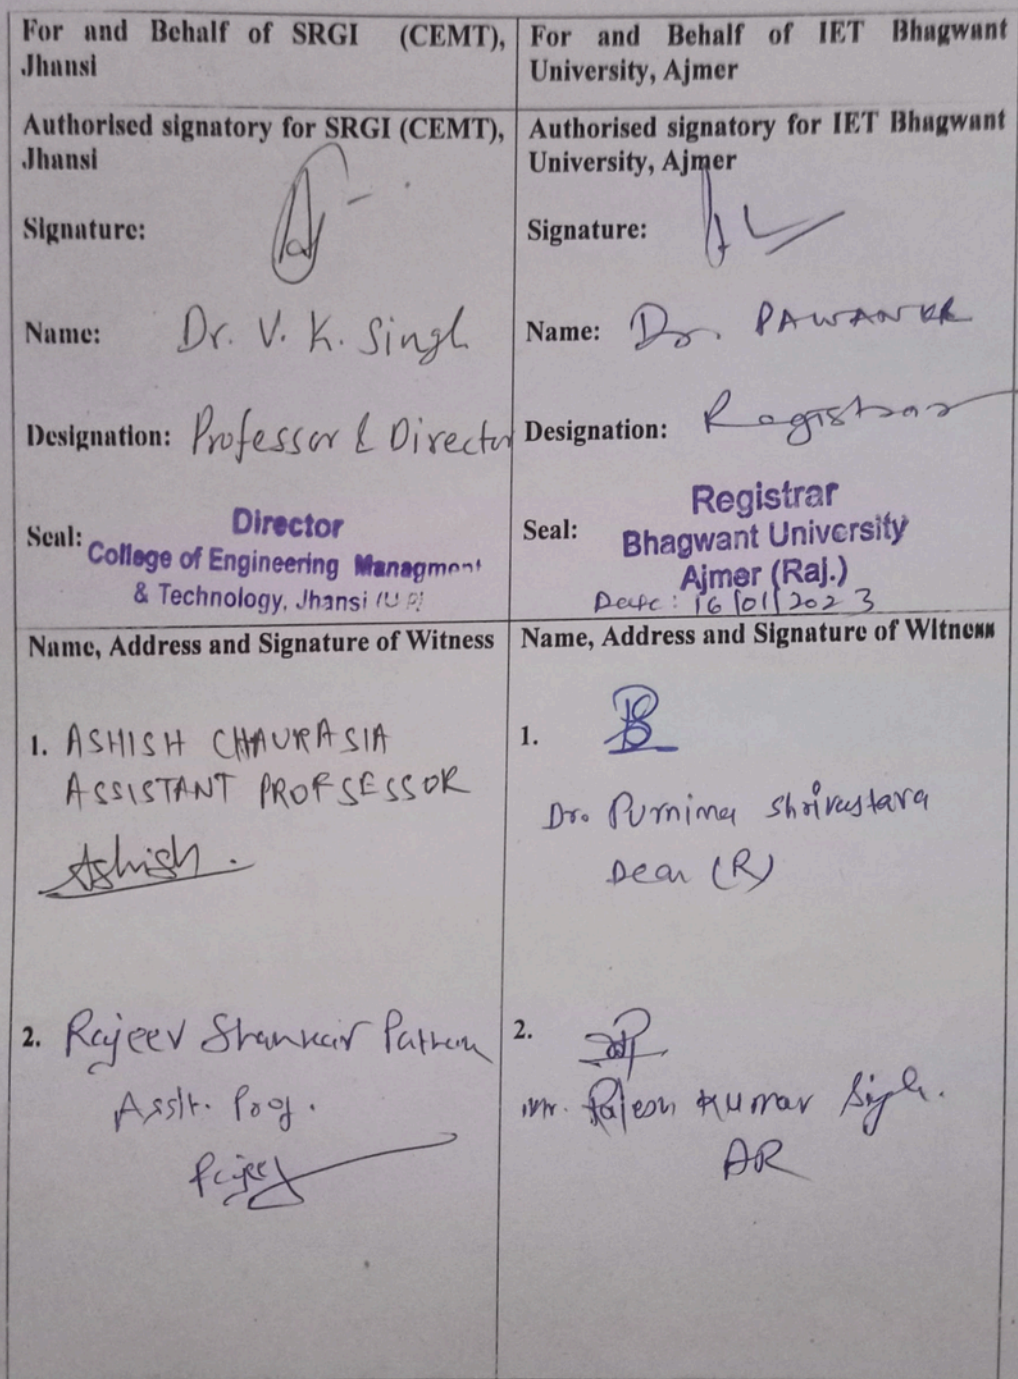 For and Behalf of SRGI (CEMT),
Jhansi
Authorised signatory for SRGI (CEMT),
Jhansi
Signature:
Name: Dr. V. K. Singh
Designation: Professor & Director
Seal: Director
College of Engineering Managment
& Technology, Jhansi (U.P)
Name, Address and Signature of Witness
1. ASHISH CHAURASIA
ASSISTANT PROFSESSOR
Ashish.
2. Rajeev Shankar Pathak
Asstt. Prof.
Rajeev
For and Behalf of IET Bhagwant
University, Ajmer
Authorised signatory for IET Bhagwant
University, Ajmer
Signature:
Name: Dr. PAWAN
Designation: Registrar
Seal: Registrar
Bhagwant University
Ajmer (Raj.)
Date: 16/01/2023
Name, Address and Signature of Witness
1.
Dr. Purnima Shrivastava
Dean (R)
2.
Mr. Rajesh Kumar Singh.
AR